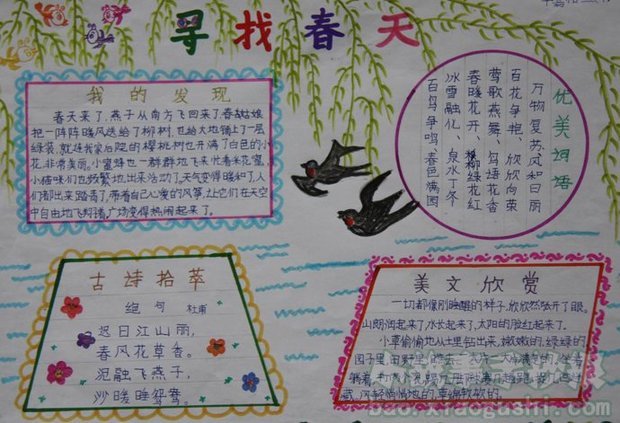 寻找春天
我的发现
春天来了,燕子从南方飞回来了.春姑娘
把一阵阵暖风送给了柳树,也给大地铺上了一层
绿装,就连我家后院的樱桃树也开满了白色的小
花,非常美丽.小蜜蜂也一群群地飞来忙着采花蜜,
小猫咪们也频繁地出来活动了.天气变得暖和了,人
们都出来踏青了,带着自己心爱的风筝,让它们在天空
中自由地飞翔着,广场变得热闹起来了.
优美词语
万物复苏、风和日丽
百花争艳、欣欣向荣
莺歌燕舞、鸟语花香
春暖花开、柳绿花红
冰雪融化、泉水丁冬
百鸟争鸣、春色满园
古诗拾萃
绝句 杜甫
迟日江山丽,
春风花草香。
泥融飞燕子,
沙暖睡鸳鸯。
美文欣赏
一切都像刚睡醒的样子,欣欣然张开了眼。
山朗润起来了,水长起来了,太阳的脸红起来了.
小草偷偷地从土里钻出来,嫩嫩的,绿绿的
园子里,田野里,瞧去,一大片一大片满是的.坐着
躺着,
藏.风轻悄悄地的,草绵软软的.
bao.xiaogushi.com